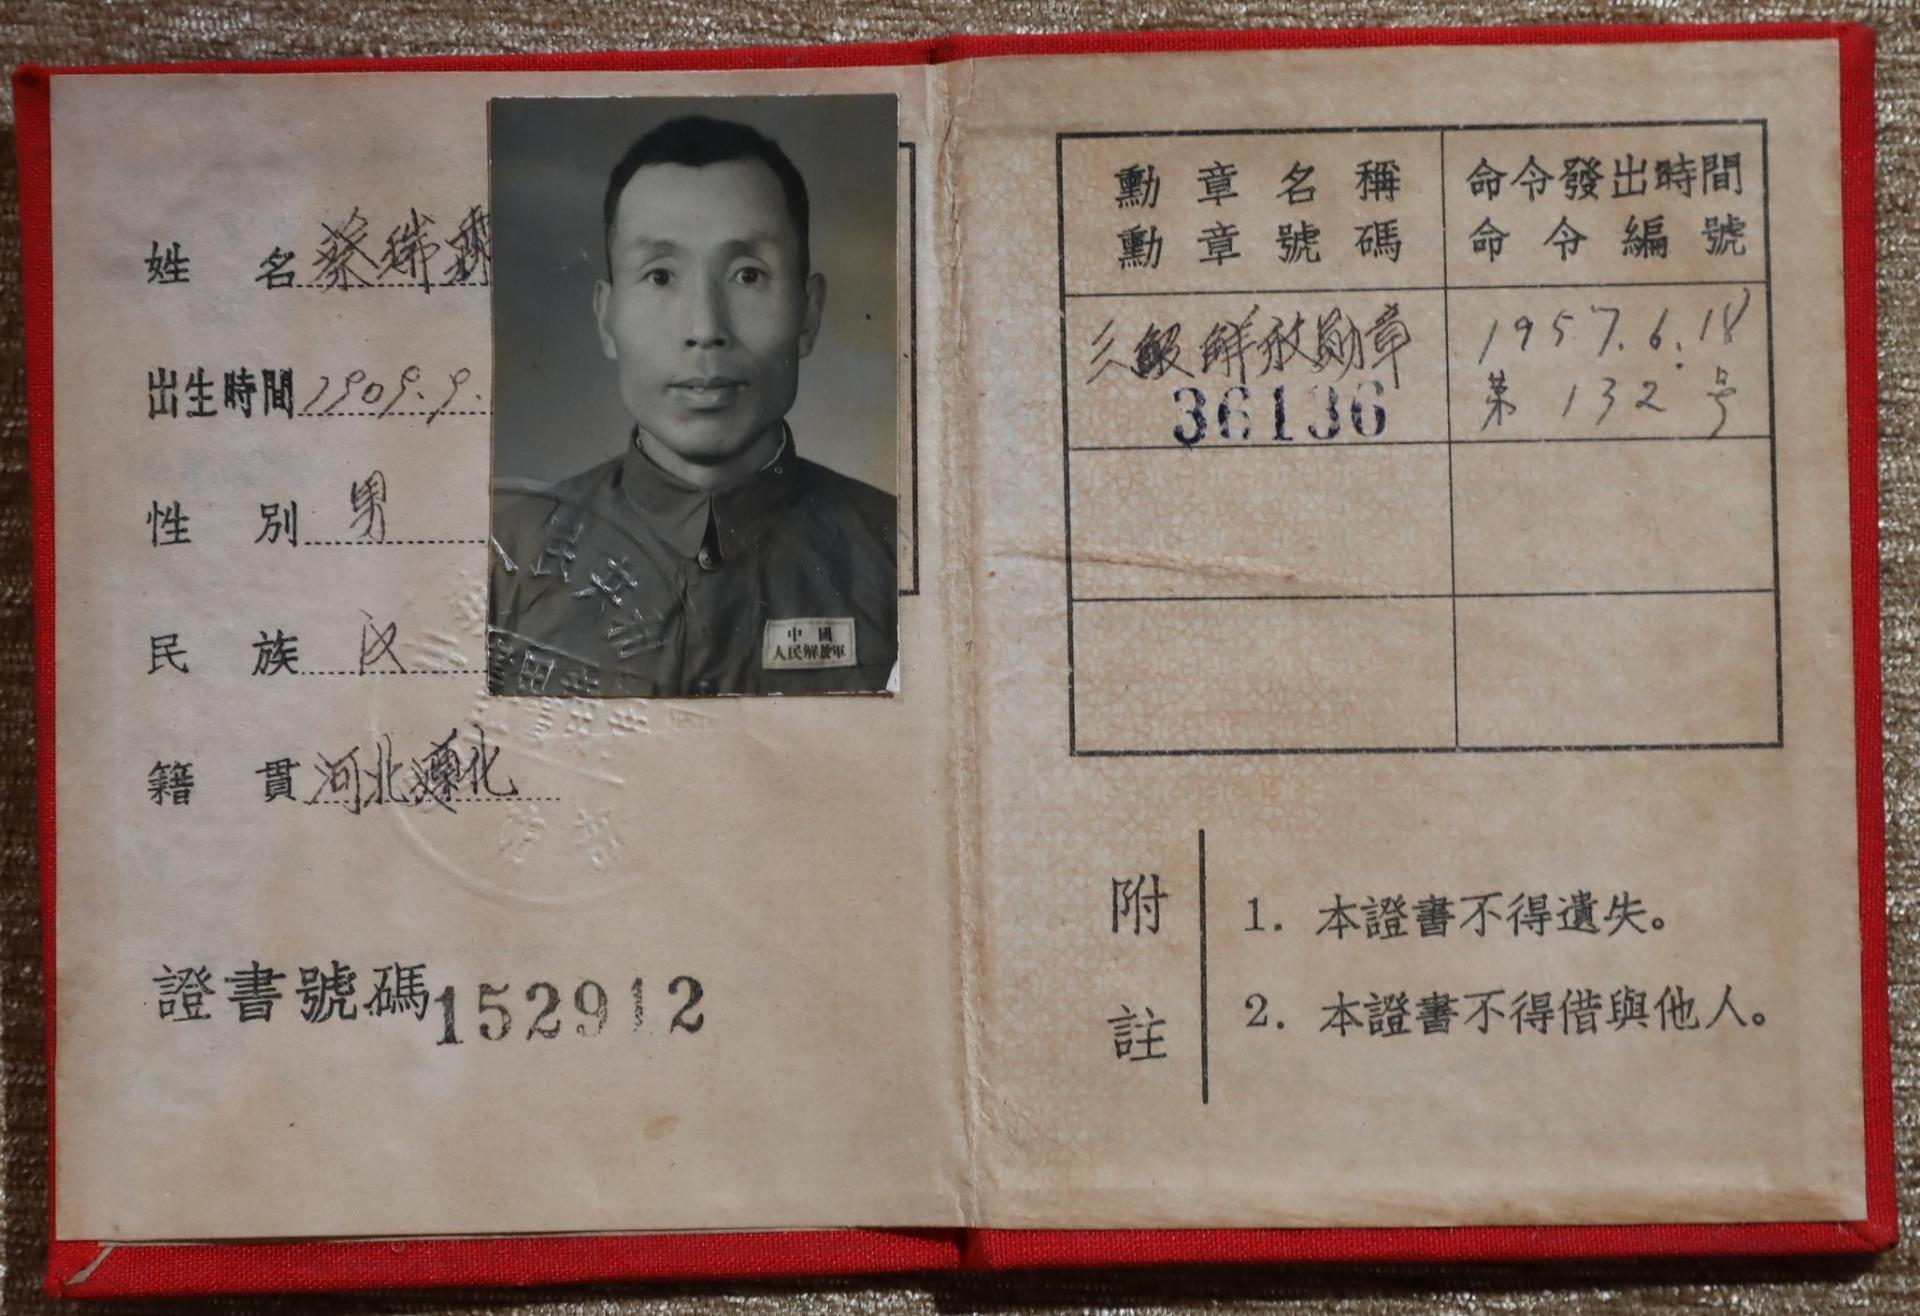 姓 名 蔡瑞
出生時間 1909.9.
性 別 男
民 族 汉
籍 貫 河北遵化
證書號碼 152912
人民共和
中國
人民解放軍
勳章名稱 命令發出時間
勳章號碼 命令編號
三級解放勋章 1957.6.18
36136 第 132 号
附註
1. 本證書不得遺失。
2. 本證書不得借與他人。